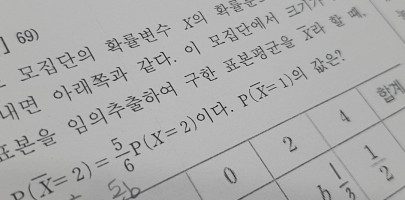 ] 69)
모집단의 확률변수 X의 확률분
내면 아래쪽과 같다. 이 모집단에서 크기가
표본을 임의추출하여 구한 표본평균을 X̄라 할 때,
P(X̄=2)=5/6P(X=2)이다. P(X̄=1)의 값은?
0 2 4 합계
1/3 1/2